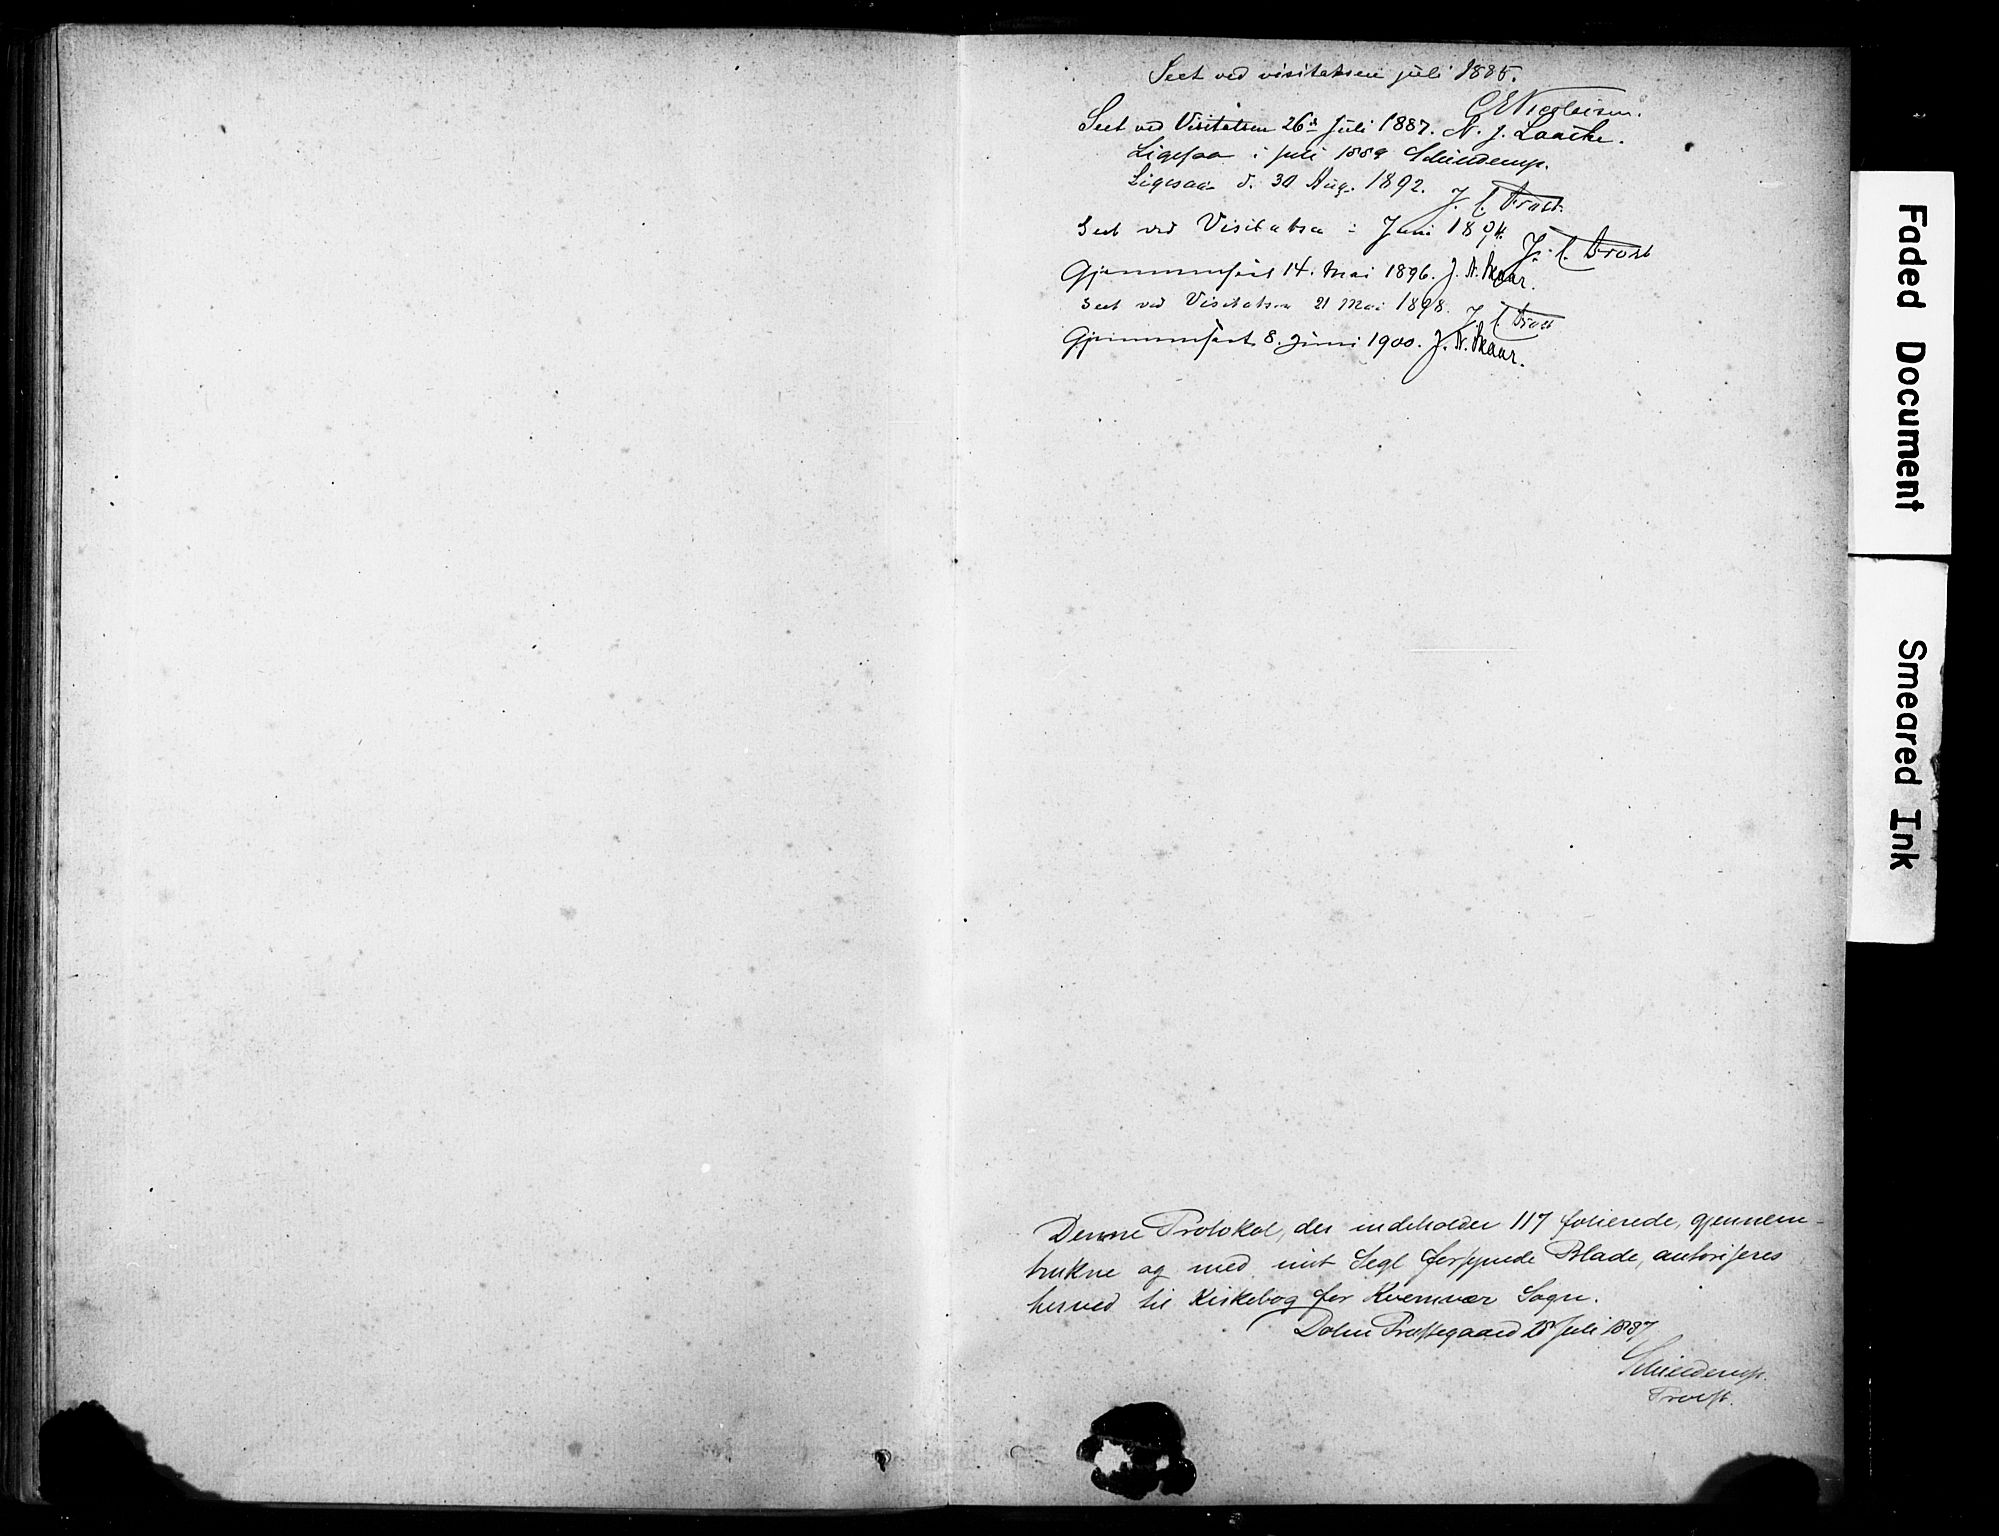 Seet ved visitatsen juli 1885.
C E Nicolaisen.
Seet ved Visitatsen 26de Juli 1887. N. J. Laache.
Ligesaa i juli 1889
Ligesaa d. 30 Aug. 1892.
J. C. Brodt
Seet ved Visitatsen i Juni 1894.
J. C. Brodt
Gjennemseet 14. Mai 1896. J. N. Skaar.
Seet ved Visitatsen 21 Mai 1898.
J. C. Brodt
Gjennemseet 8. Juni 1900. J. N. Skaar.
Denne Protokol, der indeholder 117 folierede, gjennem-
trukne og med mit Segl forsynede Blade, autoriseres
herved til Kirkebog for Kvenvær Sogn.
Dolm Præstegaard Juli
Provst.
Faded Document
Smeared Ink